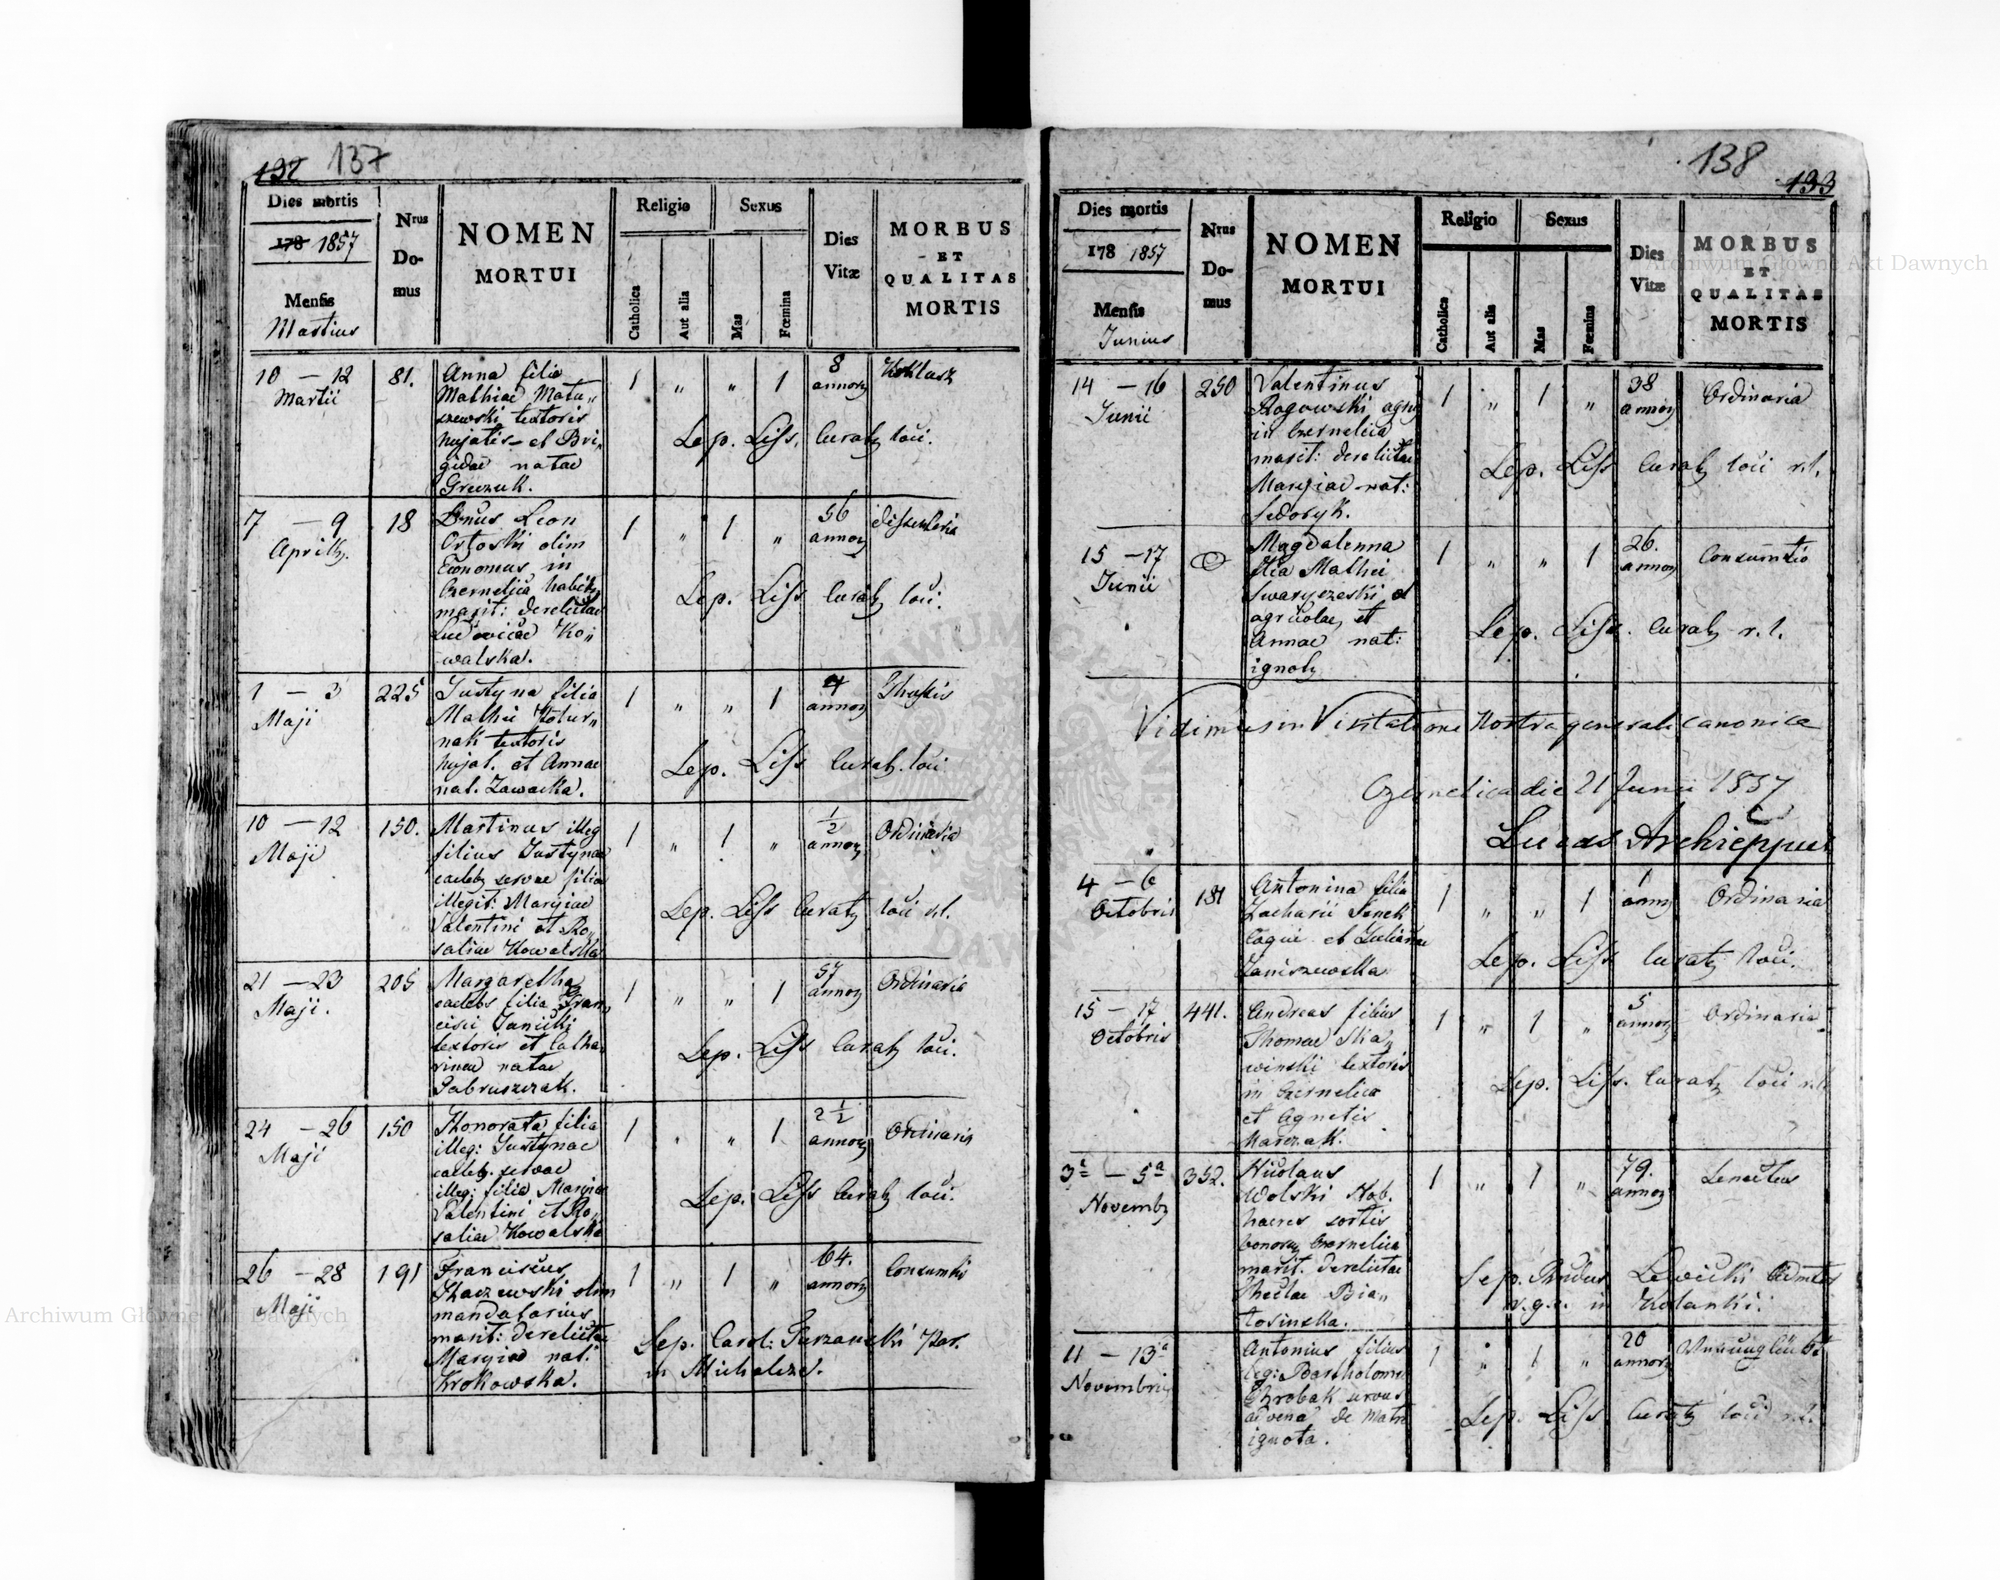 132 137
Dies mortis
178 1857
Mensis
Martius
Nrus
Do-
mus
NOMEN
MORTUI
Religio
Catholica
Aut alia
Sexus
Mas
Fœmina
Dies
Vitæ
MORBUS
ET
QUALITAS
MORTIS
10 — 12
Martii
81.
Anna filia
Mathiae Matu„
szewski textoris
hujatis et Bri„
gidae natae
Greczuk.
1 „ „ 1
8
annor
Koklusz
Sep. Liss. Curat loci.
7 — 9
Aprilis.
18
Dnus Leon
Ortoski olim
Economus in
Czernelica habit
marit: derelictae
Ludovicae Ko„
walska.
1 „ 1 „
56
annor
dissenteria
Sep. Liss Curat loci.
1 — 3
Maji
225
Justyna filia
Mathei
nak textoris
hujat. et Annae
nat. Zawacka.
1 „ „ 1
4
annor
Sep. Liss Curat. loci
10 — 12
Maji
150.
Martinus illeg
filius Justynae
caeleb servae filia
illegit: Maryiae
Valentini et Ro„
saliae Kowalska
1 „ 1 „
1/2
annor
Ordinaria
Sep. Liss Curat loci r.l.
21 — 23
Maji.
205
Margaretha
caelebs filia Fran„
cisci Janicki
textoris et Catha„
rinae natae
Pabruszczak.
1 „ „ 1
57
annor
Ordinaria
Sep. Liss Curat loci.
24 — 26
Maji
150
Honorata filia
illeg: Justynae
caeleb. servae
illeg: filia Maryiae
Valentini et Ro„
saliae Kowalska
1 „ „ 1
2 1/2
annor
Ordinaria
Sep. Liss Curat loci.
26 — 28
Maji
191
Franciscus
olim
mandatarius
marit: derelictae
Maryiae nat:
Krokowska.
1 „ 1 „
64.
annor
Consumtio
Sep. Carol: Par.
in Michalcze.
138 133
Dies mortis
178 1857
Mensis
Junius
Nrus
Do-
mus
NOMEN
MORTUI
Religio
Catholica
Aut alia
Sexus
Mas
Fœmina
Dies
Vitæ
MORBUS
ET
QUALITAS
MORTIS
14 — 16
Junii
250
Valentinus
Rogowski agri
in Czernelica
marit: derelictae
Maryiae nat:
Sedoryk.
1 „ 1 „
38
annor
Ordinaria
Sep. Liss Curat loci r.l.
15 — 17
Junii
Magdalenna
filia Mathei
agricolae, et
Annae nat:
ignota
1 „ „ 1
26.
annor
Consumtio
Sep. Liss. Curat r.l.
Vidimus in Visitatione Nostra generali canonica
Czernelica die 21 Junii 1857
Lucas Archieppus
4 — 6
Octobris
181
Antonina filia
Zacharii Sanek
Coqui et Julianae
Janiszewska
1 „ „ 1
1
anni
Ordinaria
Sep. Liss Curat loci.
15 — 17
Octobris
441.
Andreas filius
Thomae Ska„
winski textoris
in Czernelica
et Agnetis
Marczak.
1 „ 1 „
5
annor
Ordinaria
Sep. Liss. Curat loci r.l.
3a — 5a
Novemb
352.
Nicolaus
Wolski Nob.
haeres sortis
bonor Czernelica
marit. derelictae
Theclae Bia„
tosinska.
1 „ 1 „
79.
annor
Senectus
Sep. Rndus Lewicki Admtor
r.g.c. in Kolanki.
11 — 13a
Novembris
Antonius filius
leg: Bartholomei
Chrobak servus
advena de Matre
ignota.
1 „ 1 „
20
annor
Sep. Liss Curat loci r.l.
Archiwum Główne Akt Dawnych
Archiwum Główne Akt Dawnych